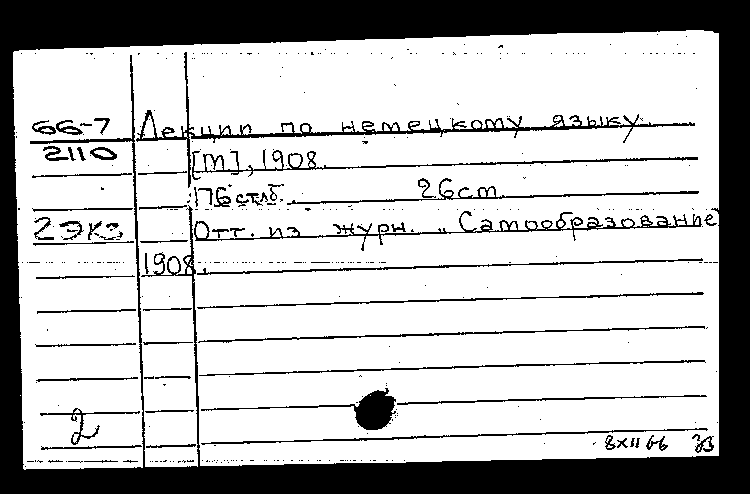 66-7 Лекции по немецкому языку.
2110 [М], 1908.
176 стлб. 26 cm.
2 экз Отт. из журн. „Самообразование
1908.
2
8 XII 66